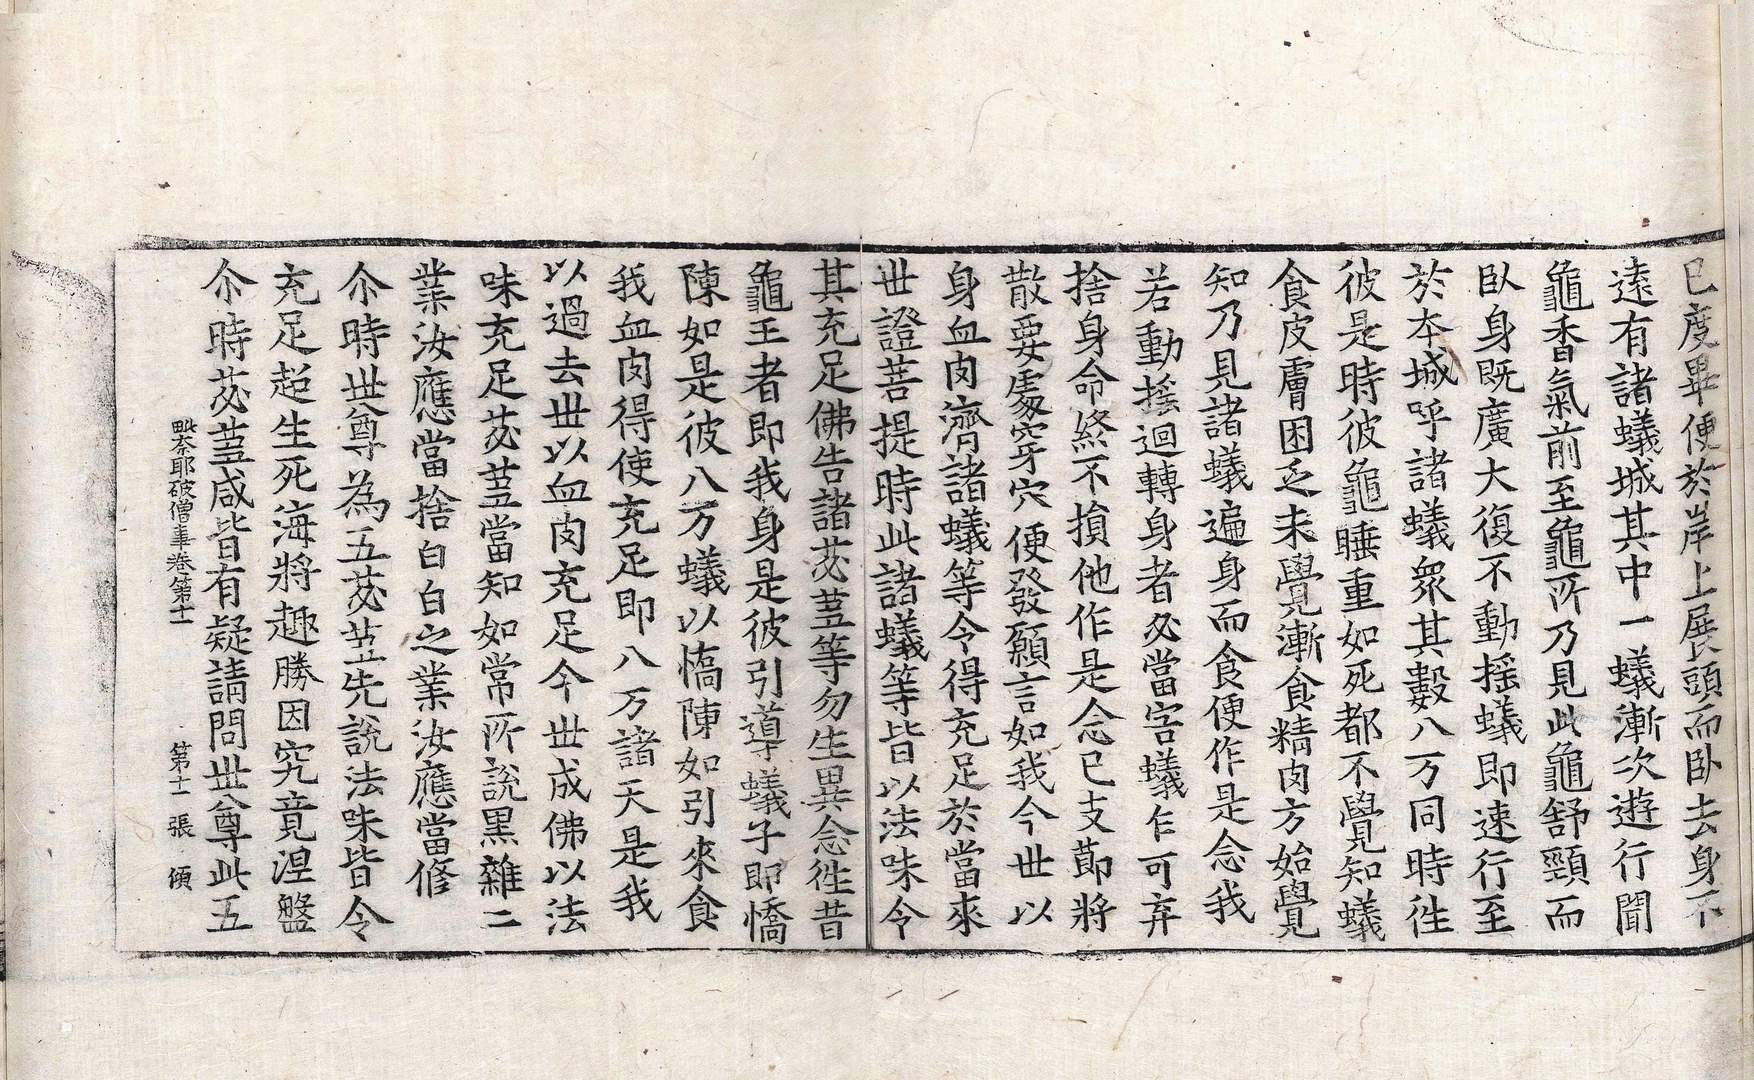 已度畢便於岸上展頭而卧去身不
遠有諸蟻城其中一蟻漸次遊行聞
龜香氣前至龜所乃見此龜舒頸而
卧身既廣大復不動搖蟻即速行至
於本城呼諸蟻衆其數八万同時徃
彼是時彼龜睡重如死都不覺知蟻
食皮膚困乏未覺漸食精肉方始覺
知乃見諸蟻遍身而食便作是念我
若動搖迴轉身者必當害蟻乍可弃
捨身命終不損他作是念已支節將
散要處穿穴便發願言如我今世以
身血肉濟諸蟻等令得充足於當來
世證菩提時此諸蟻等皆以法味令
其充足佛告諸苾蒭等勿生異念徃昔
龜王者即我身是彼引導蟻子即憍
陳如是彼八万蟻以憍陳如引來食
我血肉得使充足即八万諸天是我
以過去世以血肉充足今世成佛以法
味充足苾蒭當知如常所說黑雜二
業汝應當捨白白之業汝應當修
尒時世尊為五苾蒭先說法味皆令
充足超生死海將趣勝因究竟涅盤
尒時苾蒭咸皆有疑請問世尊此五
毗奈耶破僧事卷第十一 第十一張 傾